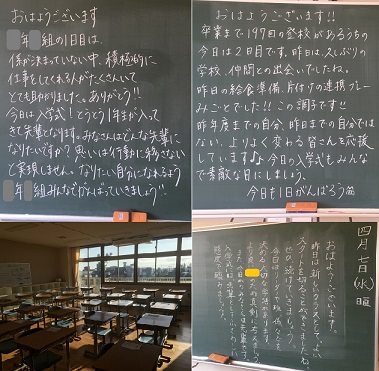 おはようございます
年 組の1日目は、
係が決まっていない中、積極的に
仕事をしてくれる人がたくさんいて
とても助かりました。ありがとう!!
今日は入学式！とうとう1年生が入って
きて先輩となります。みなさんはどんな先輩に
なりたいですか？思いは行動に移さない
と実現しません。なりたい自分になれるよう
年 組みんなでがんばっていきましょう!!
おはようございます!!
卒業まで197日の登校があるうちの
今日は2日目です。昨日は、久しぶりの
学校、仲間との出会いでしたね。
昨日の給食準備、片付けの連携プレー
みごとでした!!この調子です!!
昨年度までの自分、昨日までの自分では
ない、よりよく変わる皆さんを応援
しています♪今日の入学式もみんな
で素敵な日にしましょう。
今日も1日がんばろう
四月七日(水)曜
おはようございます。
昨日は新しいクラスとして、よい
スタートを切ることができましたね。